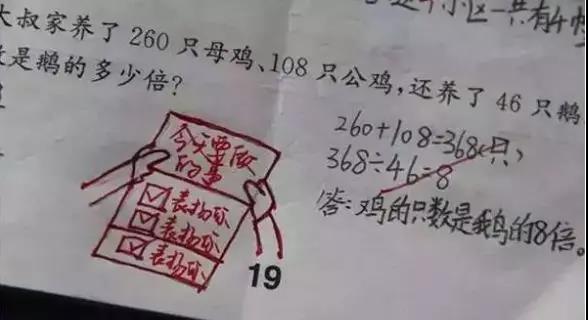 小区一共有4
大叔家养了260只母鸡、108只公鸡，还养了46只鹅
是鹅的多少倍？
260+108=368(只)
368÷46=8
答:鸡的只数是鹅的8倍。
今天要做
的事
表扬你
表扬你
表扬你
19